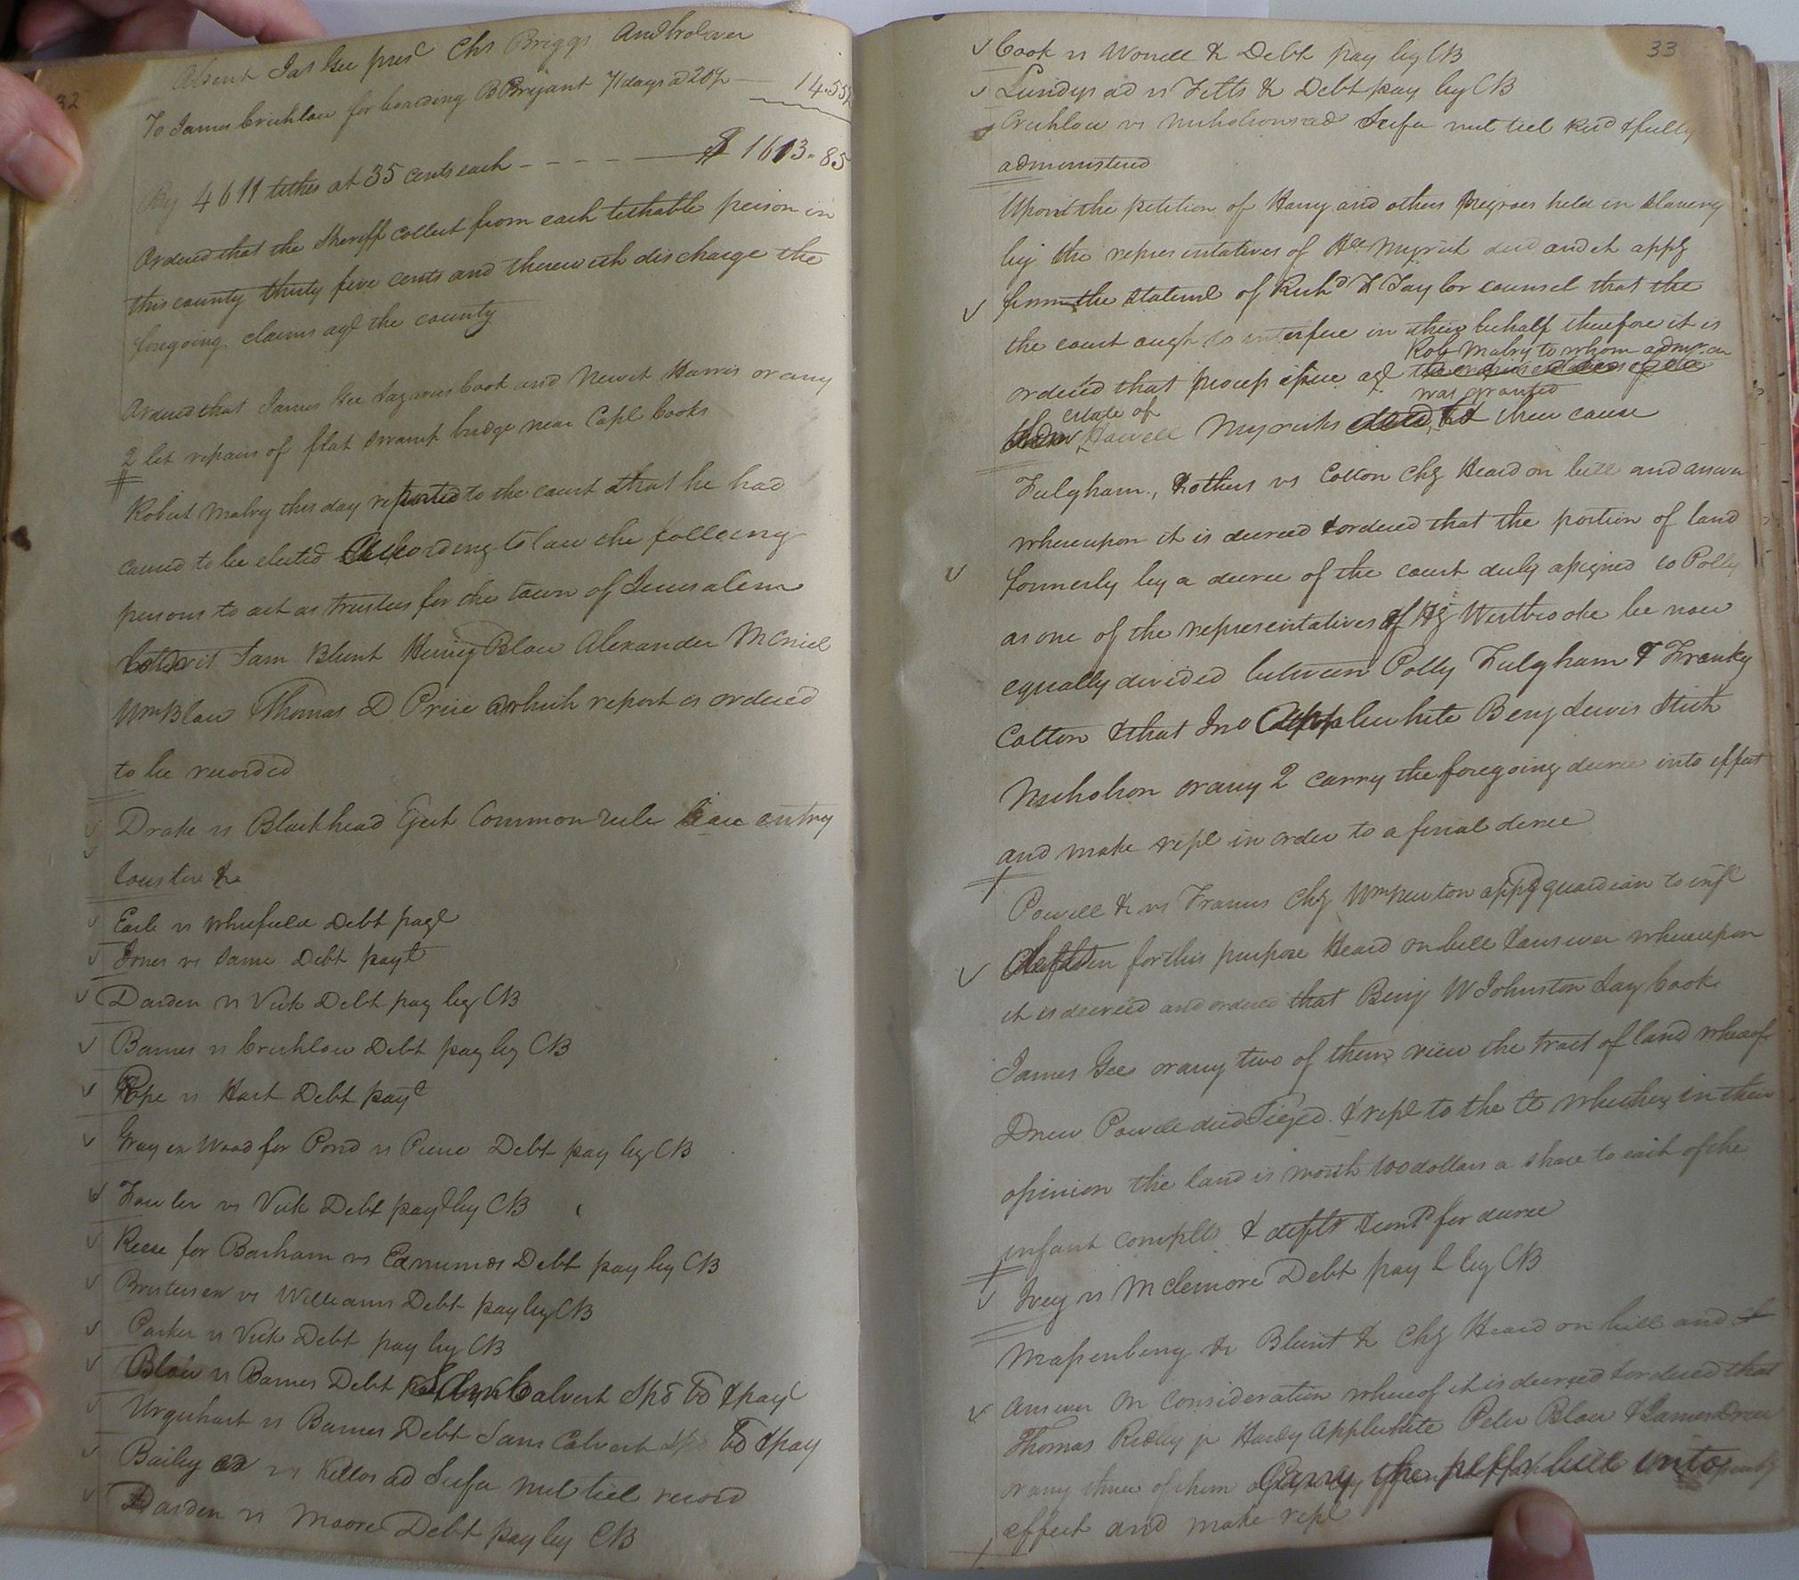 32
Absent Jas Gee pres.t Chs Briggs
To James Crichlow for boarding B Bryant 71 days a 20 14.55
By 4611 tithes at 35 cents each - - - - $ 1613.85
Ordered that the Sheriff collect from each tithable person in
this county thirty five cents and therewith discharge the
foregoing claims agt the county
Ordered that James Gee Lazarus Cook and Newit Harris or any
2 let repairs of flat swamp bridge near Capt Cooks
Robert Mabry this day reported to the court that he had
caused to be elected according to law the following
persons to act as trustees for the town of Jerusalem
to wit Sam Blunt Henry Blow Alexander McNiel
Wm Blow Thomas D Price which report is ordered
to be recorded
Drake vs Blackhead Eject Common rule lease entry
Couster &
Earle vs Whitfield Debt pays
Jones vs Same Debt pay
Darden vs Vick Debt pay by CB
Barnes vs Crichlow Debt pay by CB
Pope vs Hart Debt pay
Gray ex Wood for Pond vs Debt pay by CB
Fowler vs Vick Debt pay by CB
Reese for Barham vs Edmunds Debt pay by CB
vs Williams Debt pay by CB
Parker vs Vick Debt pay by CB
Blow vs Barnes Debt Sam Calvert Spo bo & pay
Urquhart vs Barnes Debt Sam Calvert Spo bo & pay
Bailey ad vs Kellos ad Scifa nul tiel record
Darden vs Moore Debt pay by CB
33
Cook vs Worrell & Debt pay by CB
Lundys ad vs Fitts & Debt pay by CB
Crichlow vs Nicholsons ad Scifa nul tiel Recd & fully
administered
Upon the petition of Harry and others Negroes held in Slavery
by the representatives of Hll Myrick decd and it apps
from the Statemt of Richd H Taylor counsel that the
the court ought to interfere in their behalf therefore it is
Rob Mabry to whom admr. on
ordered that process issue agt
was granted
estate of
Howell Myricks decd, to shew cause
Fulgham, & others vs Cotton Chy Heard on bill and answer
whereupon it is decreed & ordered that the portion of land
formerly by a decree of the court duly assigned to Polly
as one of the representatives of Hy Westbrooke be now
equally divided between Polly Fulgham & Franky
Cotton & that Jno Applewhite Benj Lewis
Nicholson or any 2 carry the foregoing decree into effect
and make rept in order to a final decree
Powell & vs Francis Chy Wm Newton appd guardian to inft
deften for this purpose Heard on bill & answer whereupon
it is decreed and ordered that Benj W Johnston Lay Cook
James Gee or any two of them view the tract of land whereof
Drew Powell died Siezed & rept to the Ct whether in their
opinion the land is worth 100 dollars a share to each of the
infant complts & defts & contd for decree
Ivey vs McLemore Debt pay by CB
Massenberg & Blunt & Chy Heard on bill and
answer On consideration whereof it is decreed & ordered that
Thomas Ridley jr Henry Applewhite Peter Blow & James Drew
or any three of them carry the bill into
effect and make rept